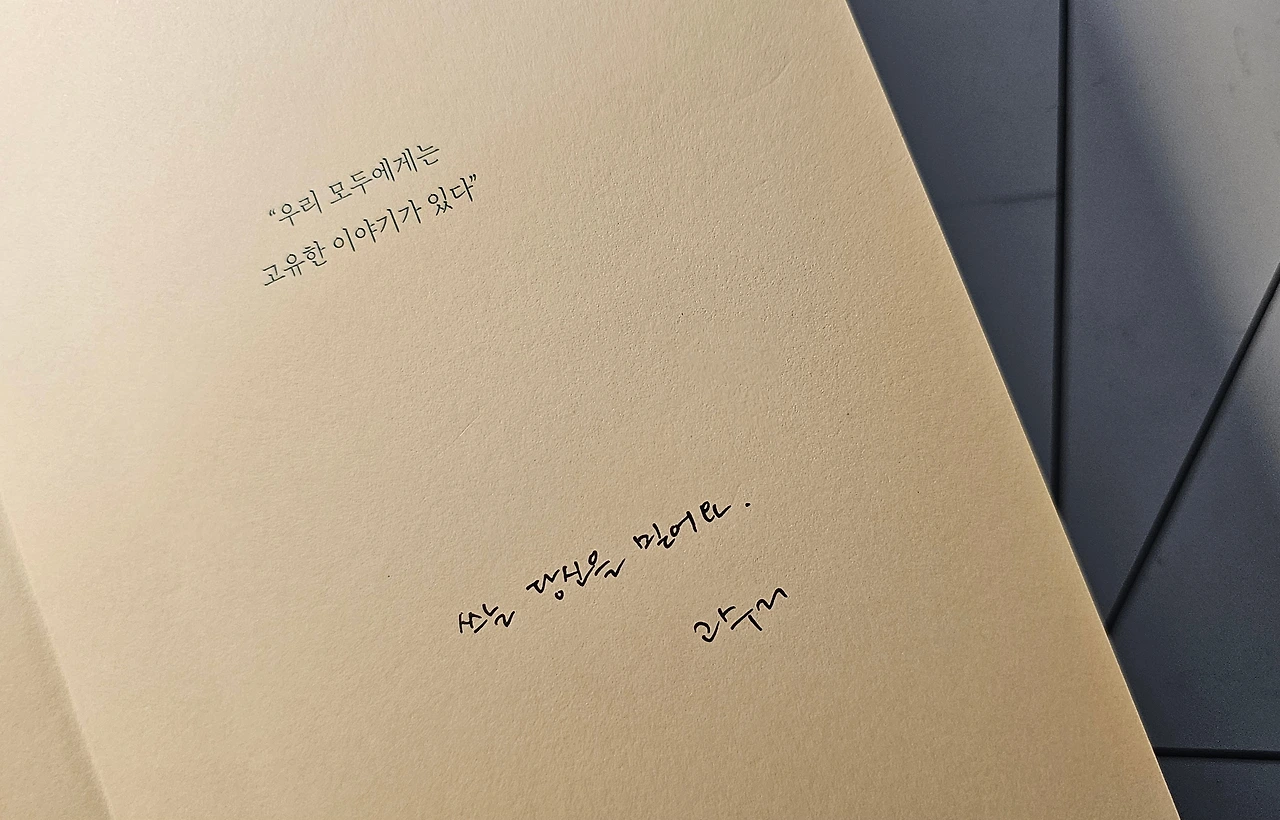 “우리 모두에게는
고유한 이야기가 있다”
쓰는 당신을 믿어요.
고수리